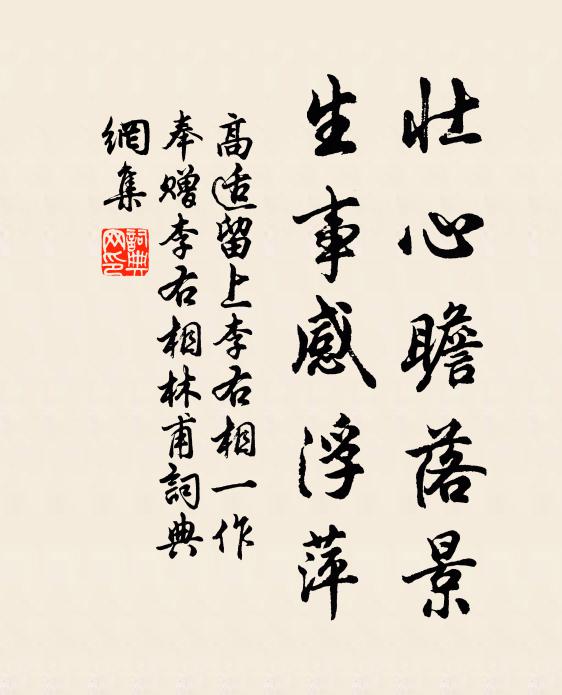 壯心瞻落景
生事感浮萍
高适留上李右相一作
奉贈李右相林甫詞典
網集
詞典
网印